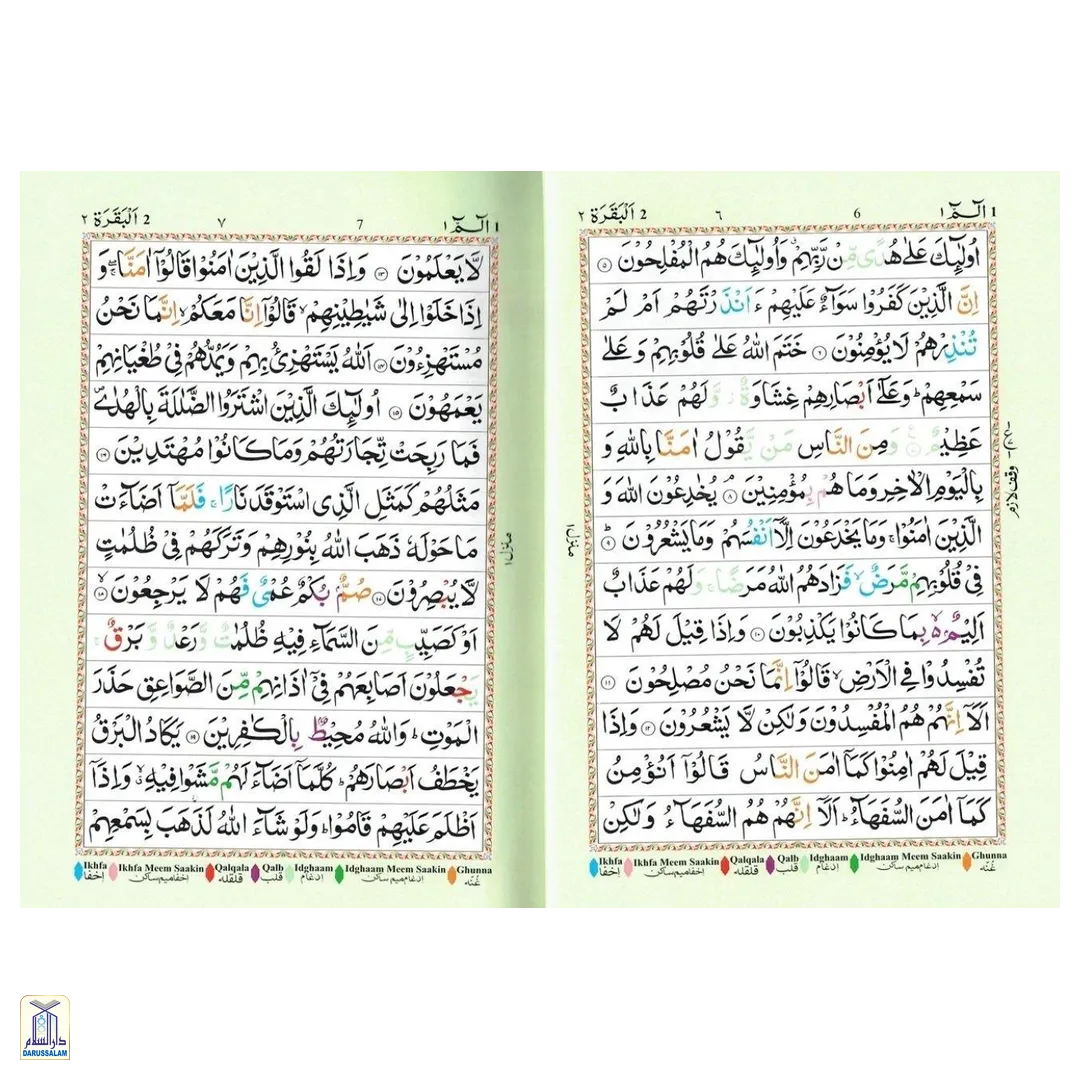 1 الٓـمّٓ ١ 6 ٦ 2 اَلْبَقَرَة ٢
اُولٰٓئِكَ عَلٰى هُدًى مِّنْ رَّبِّهِمْ ۙ وَاُولٰٓئِكَ هُمُ الْمُفْلِحُوْنَ ۵
اِنَّ الَّذِيْنَ كَفَرُوْا سَوَآءٌ عَلَيْهِمْ ءَاَنْذَرْتَهُمْ اَمْ لَمْ
تُنْذِرْهُمْ لَا يُؤْمِنُوْنَ ۶ خَتَمَ اللّٰهُ عَلٰى قُلُوْبِهِمْ وَعَلٰى
سَمْعِهِمْ ؕ وَعَلٰٓى اَبْصَارِهِمْ غِشَاوَةٌ ؗ وَّلَهُمْ عَذَابٌ
عَظِيْمٌ ۷ وَمِنَ النَّاسِ مَنْ يَّقُوْلُ اٰمَنَّا بِاللّٰهِ وَ
بِالْيَوْمِ الْاٰخِرِ وَمَا هُمْ بِمُؤْمِنِيْنَ ۘ ۸ يُخٰدِعُوْنَ اللّٰهَ وَ
الَّذِيْنَ اٰمَنُوْا ۚ وَمَا يَخْدَعُوْنَ اِلَّآ اَنْفُسَهُمْ وَمَا يَشْعُرُوْنَ ؕ ۹
فِيْ قُلُوْبِهِمْ مَّرَضٌ ۙ فَزَادَهُمُ اللّٰهُ مَرَضًا ۚ وَلَهُمْ عَذَابٌ
اَلِيْمٌۢ ۙ۬ بِمَا كَانُوْا يَكْذِبُوْنَ ۱۰ وَاِذَا قِيْلَ لَهُمْ لَا
تُفْسِدُوْا فِي الْاَرْضِ ۙ قَالُوْٓا اِنَّمَا نَحْنُ مُصْلِحُوْنَ ۱۱
اَلَآ اِنَّهُمْ هُمُ الْمُفْسِدُوْنَ وَلٰكِنْ لَّا يَشْعُرُوْنَ ۱۲ وَاِذَا
قِيْلَ لَهُمْ اٰمِنُوْا كَمَآ اٰمَنَ النَّاسُ قَالُوْٓا اَنُؤْمِنُ
كَمَآ اٰمَنَ السُّفَهَآءُ ؕ اَلَآ اِنَّهُمْ هُمُ السُّفَهَآءُ وَلٰكِنْ
وقف لازم
منزل ١
Ikhfa Ikhfa Meem Saakin Qalqala Qalb Idghaam Idghaam Meem Saakin Ghunna
اِخفَا اِخفا میم ساکن قلقلہ قلب اِدغام اِدغام میم ساکن غُنّہ
1 الٓـمّٓ ١ 7 ٧ 2 اَلْبَقَرَة ٢
لَّا يَعْلَمُوْنَ ۱۳ وَاِذَا لَقُوا الَّذِيْنَ اٰمَنُوْا قَالُوْٓا اٰمَنَّا ۚۖ وَ
اِذَا خَلَوْا اِلٰى شَيٰطِيْنِهِمْ ۙ قَالُوْٓا اِنَّا مَعَكُمْ ۙ اِنَّمَا نَحْنُ
مُسْتَهْزِءُوْنَ ۱۴ اَللّٰهُ يَسْتَهْزِئُ بِهِمْ وَيَمُدُّهُمْ فِيْ طُغْيَانِهِمْ
يَعْمَهُوْنَ ۱۵ اُولٰٓئِكَ الَّذِيْنَ اشْتَرَوُا الضَّلٰلَةَ بِالْهُدٰى ۪
فَمَا رَبِحَتْ تِّجَارَتُهُمْ وَمَا كَانُوْا مُهْتَدِيْنَ ۱۶
مَثَلُهُمْ كَمَثَلِ الَّذِى اسْتَوْقَدَ نَارًا ۚ فَلَمَّآ اَضَآءَتْ
مَا حَوْلَهٗ ذَهَبَ اللّٰهُ بِنُوْرِهِمْ وَتَرَكَهُمْ فِيْ ظُلُمٰتٍ
لَّا يُبْصِرُوْنَ ۱۷ صُمٌّۢ بُكْمٌ عُمْيٌ فَهُمْ لَا يَرْجِعُوْنَ ۙ ۱۸
اَوْ كَصَيِّبٍ مِّنَ السَّمَآءِ فِيْهِ ظُلُمٰتٌ وَّرَعْدٌ وَّبَرْقٌ ۚ
يَجْعَلُوْنَ اَصَابِعَهُمْ فِيْٓ اٰذَانِهِمْ مِّنَ الصَّوَاعِقِ حَذَرَ
الْمَوْتِ ؕ وَاللّٰهُ مُحِيْطٌۢ بِالْكٰفِرِيْنَ ۱۹ يَكَادُ الْبَرْقُ
يَخْطَفُ اَبْصَارَهُمْ ؕ كُلَّمَآ اَضَآءَ لَهُمْ مَّشَوْا فِيْهِ ۙۗ وَاِذَآ
اَظْلَمَ عَلَيْهِمْ قَامُوْا ؕ وَلَوْ شَآءَ اللّٰهُ لَذَهَبَ بِسَمْعِهِمْ
منزل ١
Ikhfa Ikhfa Meem Saakin Qalqala Qalb Idghaam Idghaam Meem Saakin Ghunna
اِخفَا اِخفا میم ساکن قلقلہ قلب اِدغام اِدغام میم ساکن غُنّہ
دار السلام
DARUSSALAM